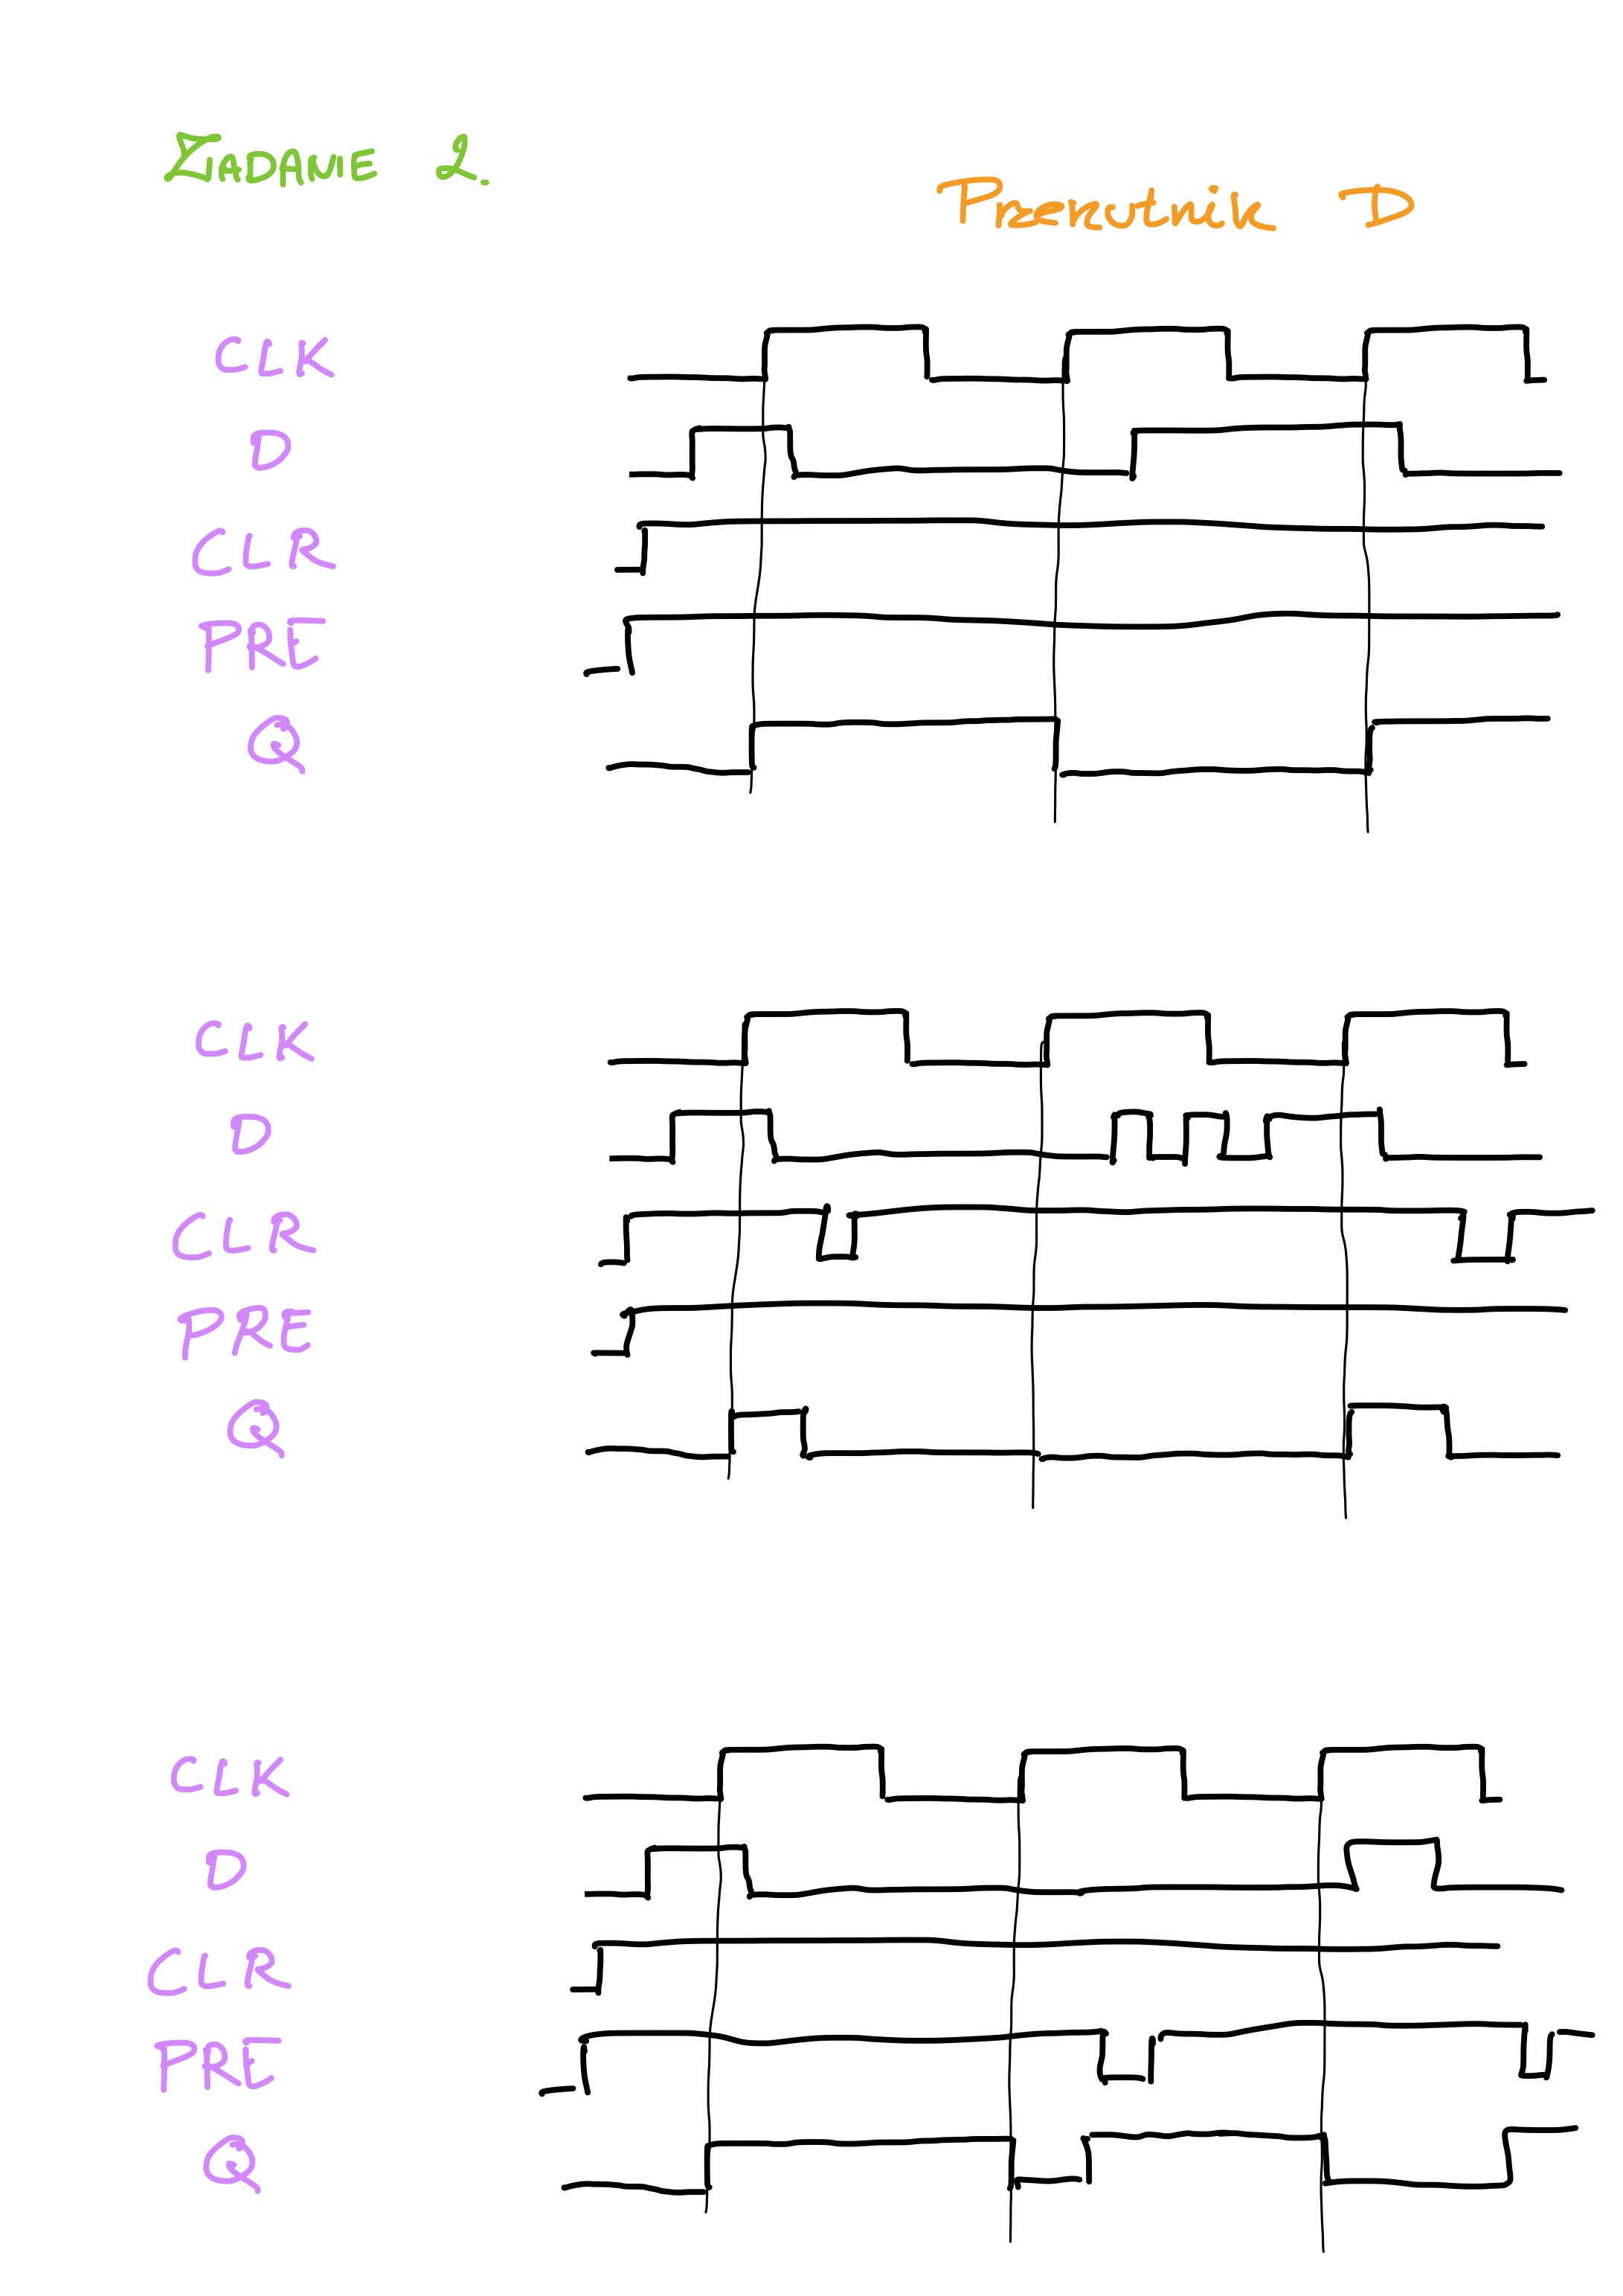 ZADANIE 2.
Przerzutnik D
CLK
D
CLR
PRE
Q
CLK
D
CLR
PRE
Q
CLK
D
CLR
PRE
Q